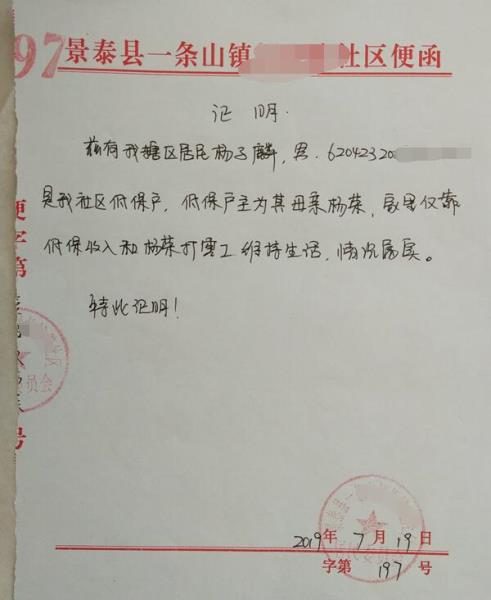 97
景泰县一条山镇 社区便函
证 明.
兹有我辖区居民杨子麟，男．62042320
是我社区低保户，低保户主为其母亲杨荣，家里仅靠
低保收入和杨荣打零工维持生活，情况属实。
特此证明！
便字第 号
社区
委员会
2019年7月19日
字第 197 号